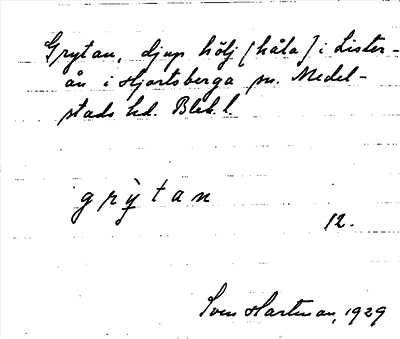 Grytan, djup hölj [håla] i Lister-
ån i Hjortsberga sn. Medel-
stads hd. Blek. l.
grỳtan
12.
Sven Hartman, 1929